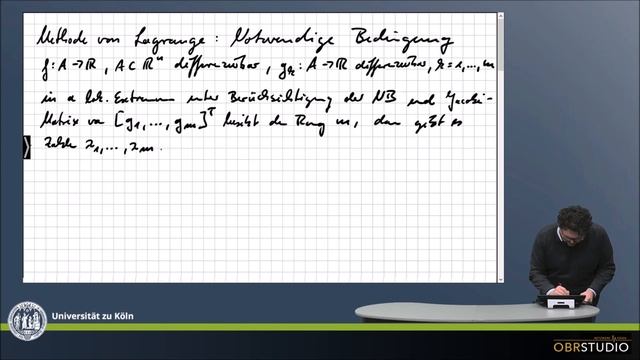 Methode von Lagrange: Notwendige Bedingung
f: A → ℝ, A ⊂ ℝⁿ differenzierbar, gₖ: A → ℝ differenzierbar, k = 1, ..., m
in a lok. Extremum unter Berücksichtigung der NB und Jacobi-
Matrix von [g₁, ..., gₘ]ᵀ besitzt den Rang m, dann gibt es
Zahlen λ₁, ..., λₘ.
Universität zu Köln
OBRSTUDIO